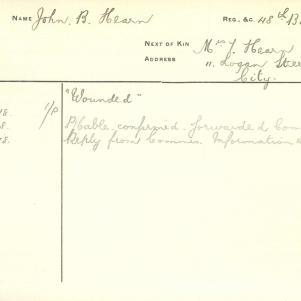 NAME John. B. Hearn
REG. &C. 48th B
NEXT OF KIN Mrs J. Hearn
ADDRESS 11. Logan Stree
City.
"Wounded"
18. 1/P
8. B/Cable. confirmed. forwarded Com
18. Reply from Commis. Information